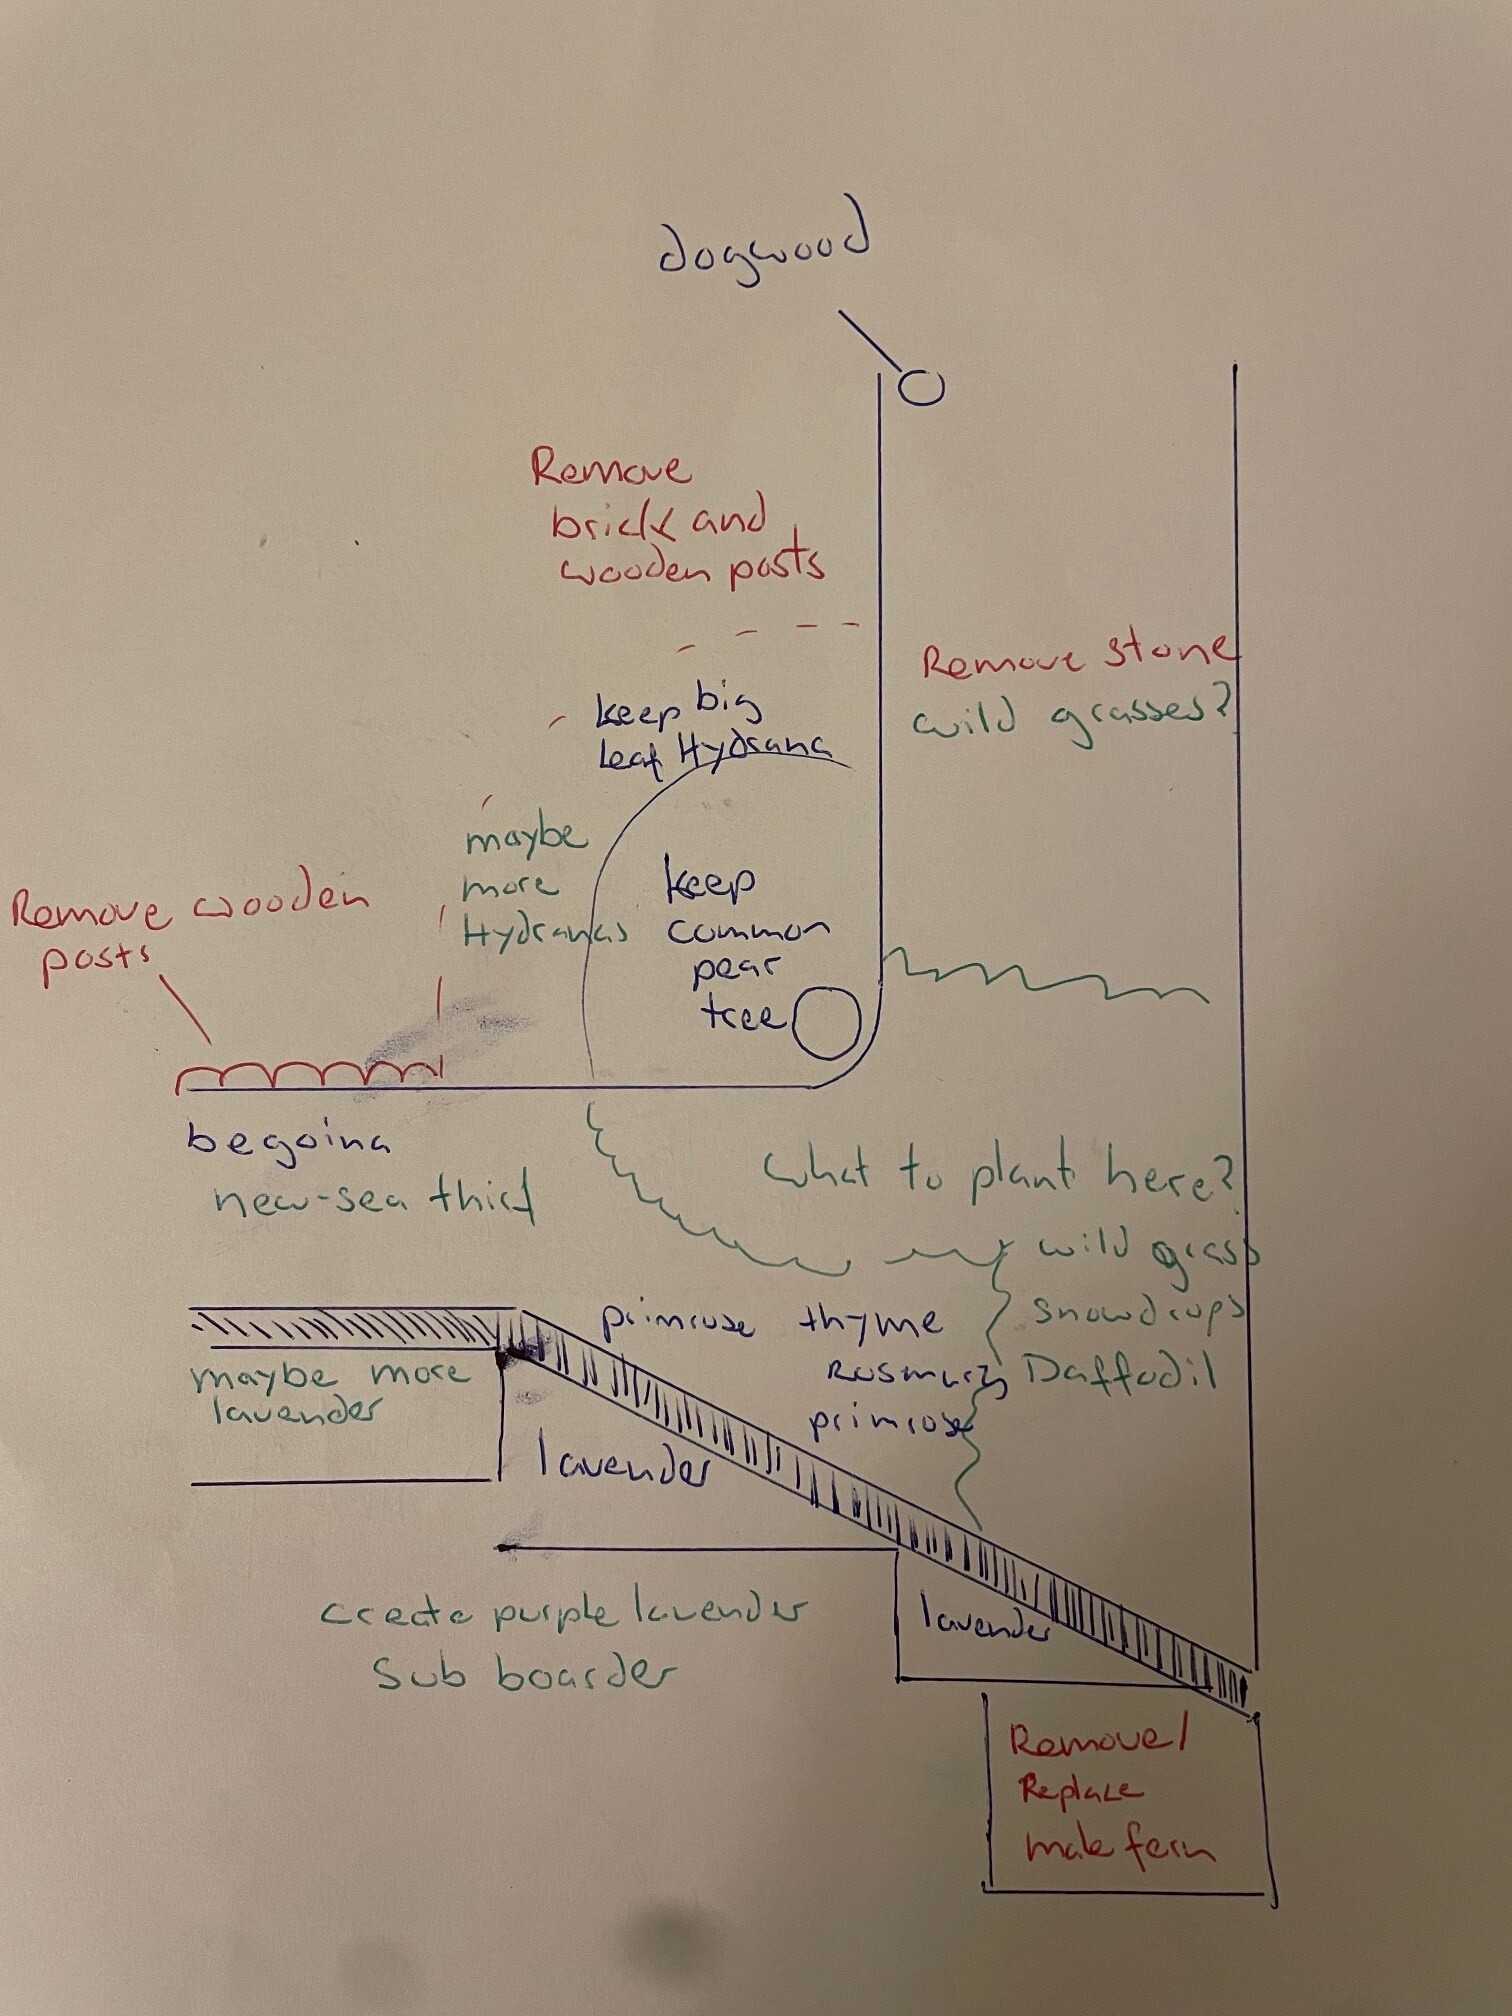 dogwood
Remove
brick and
wooden posts
Remove stone
wild grasses?
keep big
leaf Hydrana
maybe
more
Hydranas
keep
common
pear
tree
Remove wooden
posts
begoina
new-sea thift
what to plant here?
wild grass
snowdrops
Daffodil
primrose thyme
Rosmary
primrose
maybe more
lavender
lavender
create purple lavender
sub boarder
lavender
Remove/
Replace
male fern